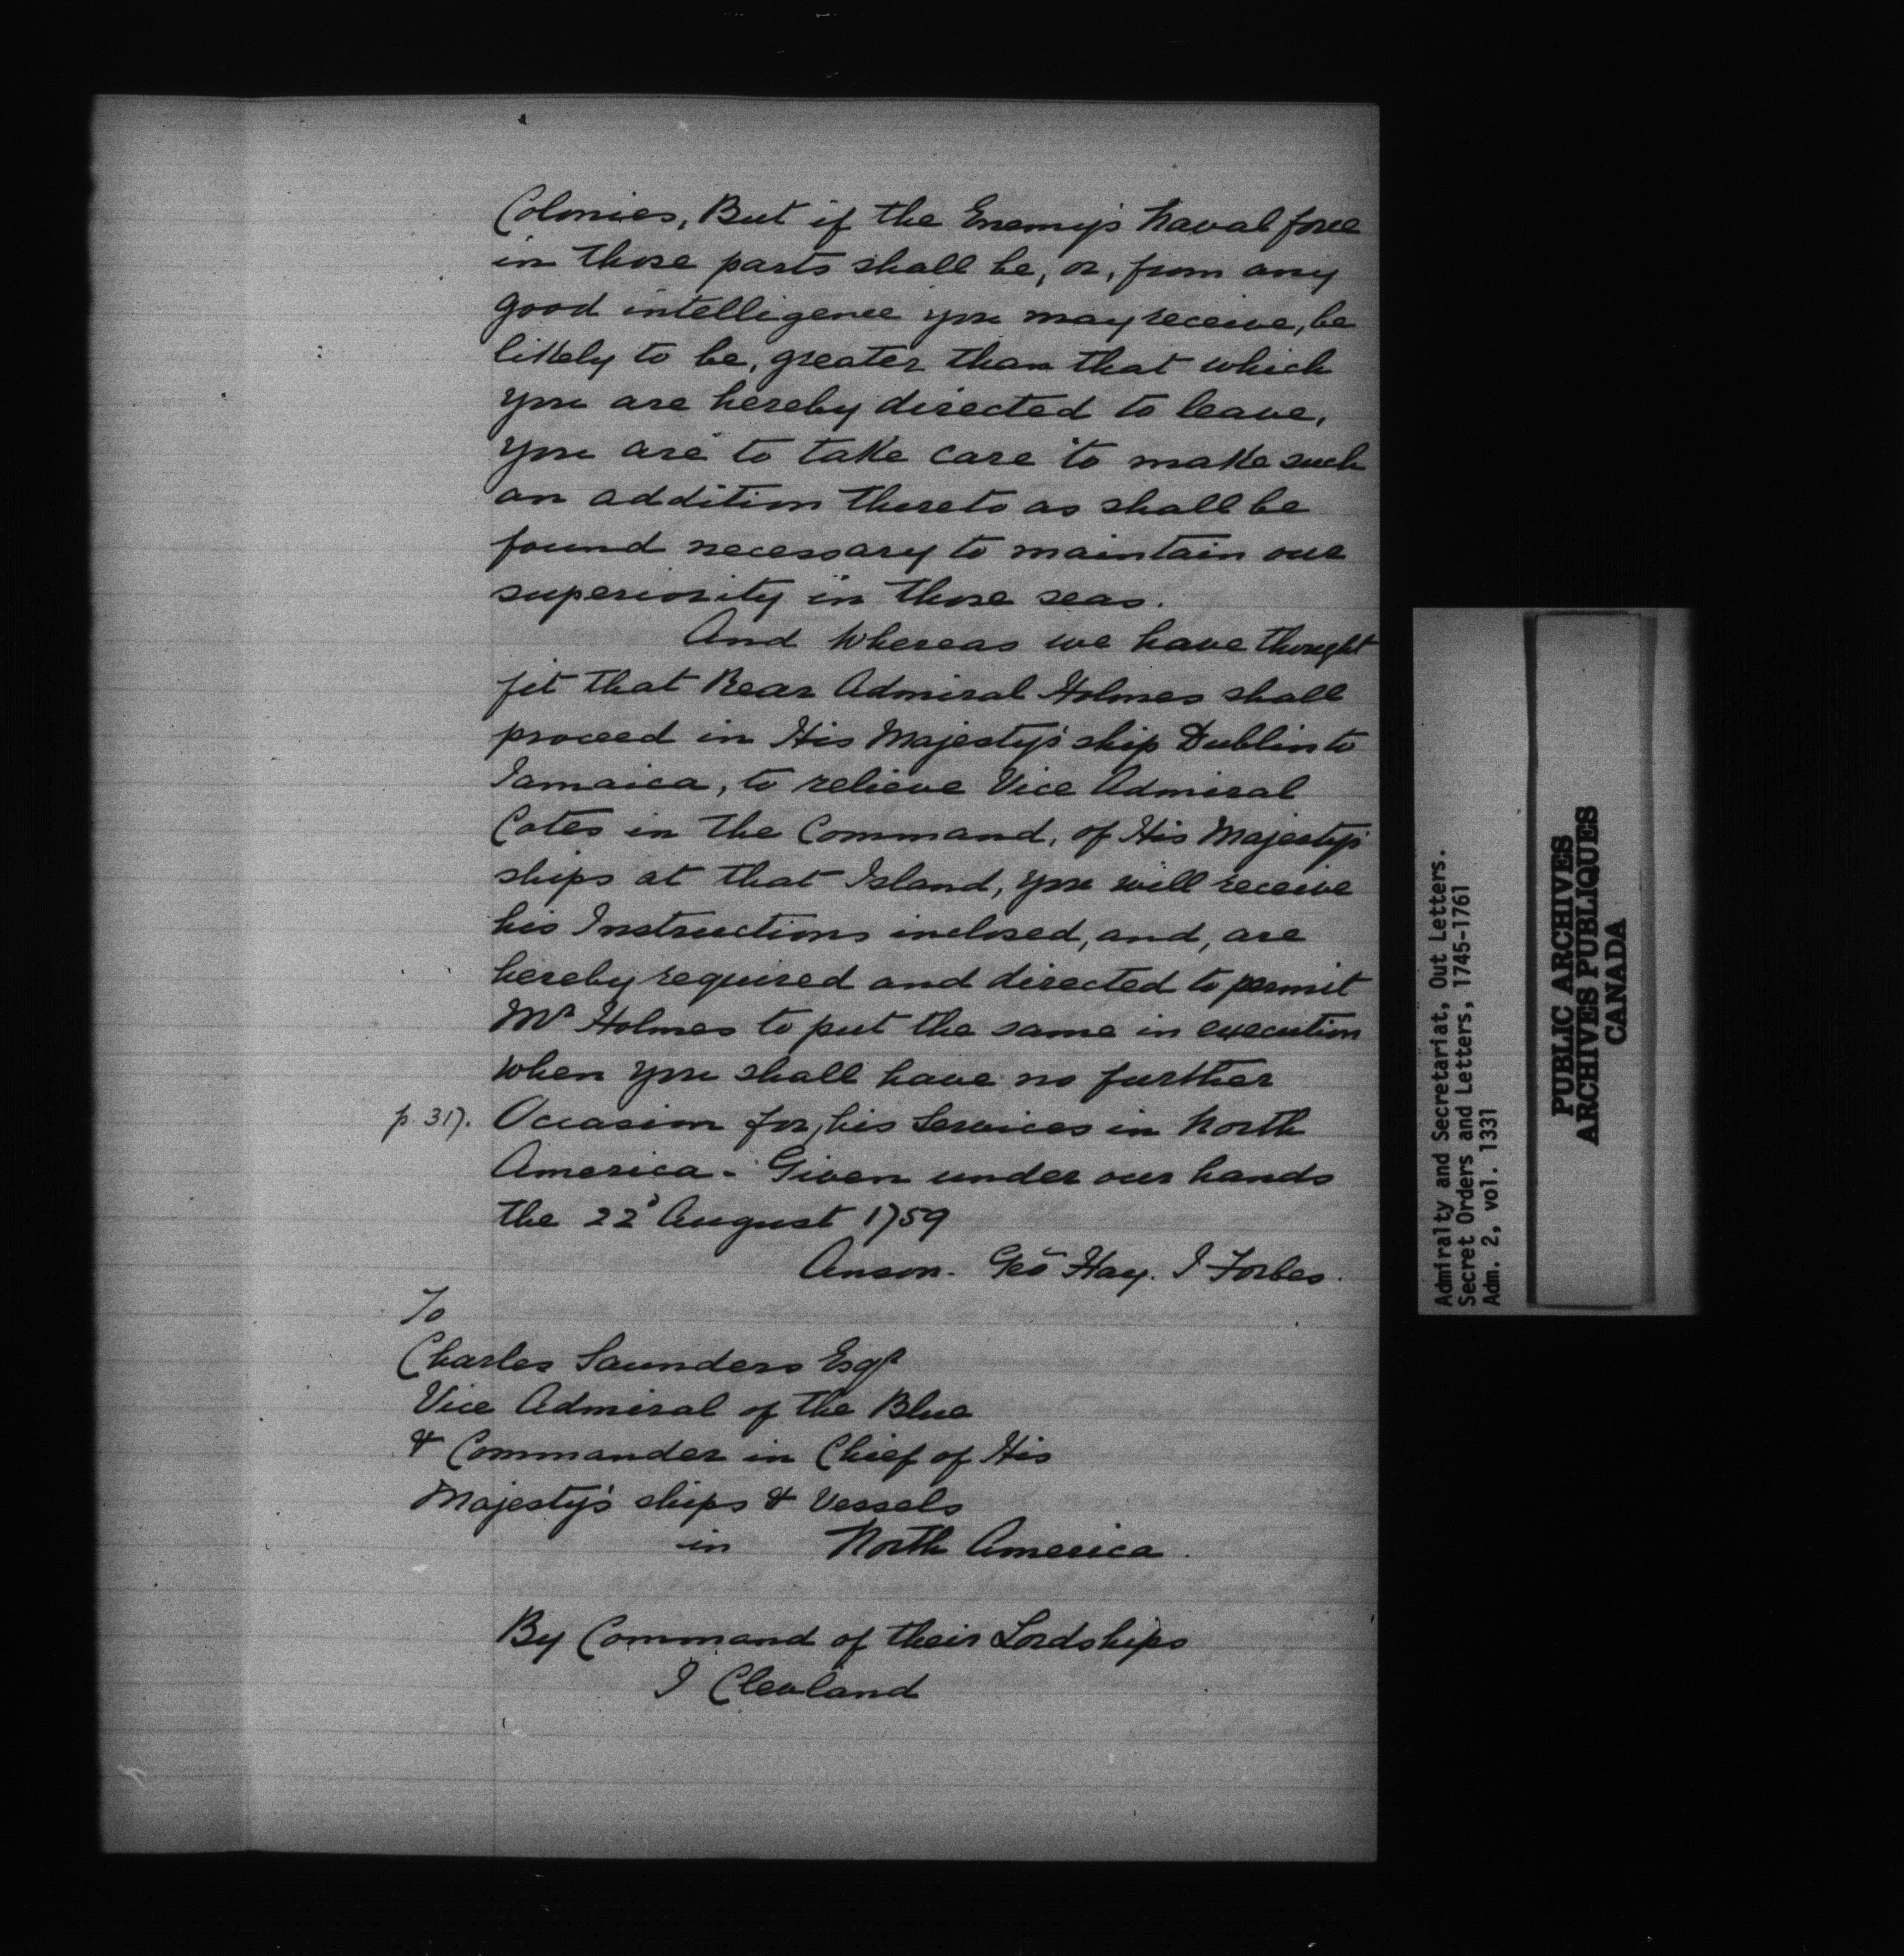 Colonies, But if the Enemy's Naval force
in those parts shall be, or, from any
good intelligence you may receive, be
likely to be, greater than that which
you are hereby directed to leave,
you are to take care to make such
an addition thereto as shall be
found necessary to maintain our
superiority in those seas.
And Whereas we have thought
fit that Rear Admiral Holmes shall
proceed in His Majesty's ship Dublin to
Jamaica, to relieve Vice Admiral
Cotes in the Command, of His Majesty's
ships at that Island, you will receive
his Instructions inclosed, and, are
hereby required and directed to permit
Mr Holmes to put the same in execution
when you shall have no further
p. 317. Occasion for, his Services in North
America - Given under our hands
the 22d August 1759
Anson. Geo Hay. J Forbes.
To
Charles Saunders Esqr
Vice Admiral of the Blue
& Commander in Chief of His
Majesty's ships & Vessels
in North America.
By Command of their Lordships
J Clevland
Admiralty and Secretariat, Out Letters.
Secret Orders and Letters, 1745-1761
Adm. 2, vol. 1331
PUBLIC ARCHIVES
ARCHIVES PUBLIQUES
CANADA